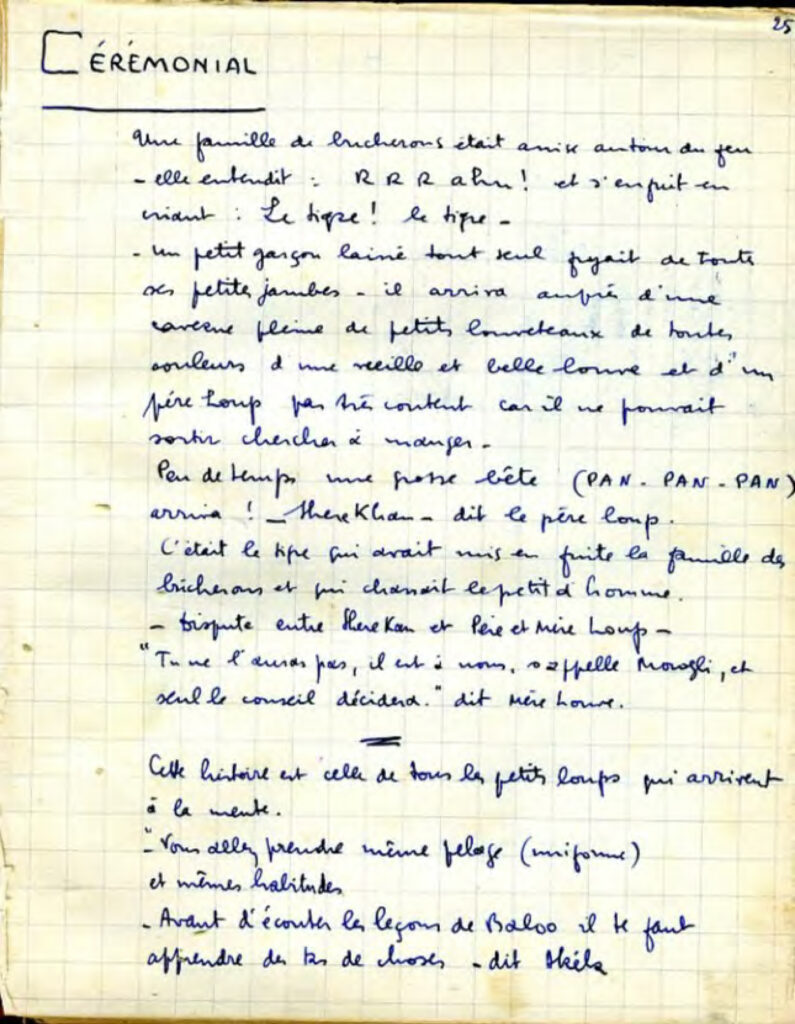 25
CÉRÉMONIAL
Une famille de bucherons était assise autour du feu
- elle entendit : R R R ahn ! et s'enfuit en
criant : Le tigre ! le tigre -
- un petit garçon laissé tout seul fuyait de toutes
ses petites jambes - il arriva auprès d'une
caverne pleine de petits louveteaux de toutes
couleurs d'une vieille et belle louve et d'un
père Loup pas très content car il ne pouvait
sortir chercher à manger -
Peu de temps une grosse bête (PAN - PAN - PAN)
arriva ! - Shere Khan - dit le père loup.
C'était le tigre qui avait mis en fuite la famille des
bûcherons et qui chassait le petit d'homme.
- Dispute entre Shere Kan et Père et Mère Loup -
"Tu ne l'auras pas, il est à nous, s'appelle Mowgli, et
seul le conseil décidera." dit Mère Louve.
Cette histoire est celle de tous les petits loups qui arrivent
à la meute.
"- Vous allez prendre même pelage (uniforme)
et mêmes habitudes
- Avant d'écouter les leçons de Baloo il te faut
apprendre des tas de choses - dit Akéla